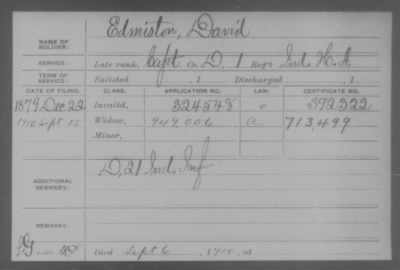 NAME OF SOLDIER: Edmiston, David
SERVICE: Late rank, Capt Co. D, 1 Reg't Ind. H. A.
TERM OF SERVICE: Enlisted , 1 Discharged , 1
DATE OF FILING. CLASS. APPLICATION NO. LAW. CERTIFICATE NO.
1879 Dec 22 Invalid, 324548 c 392322
1910 Sept 15 Widow, 949.006 a 713,499
Minor,
ADDITIONAL SERVICES: D, 21 Ind. Inf
REMARKS:
Died Sept 6, 1910, at